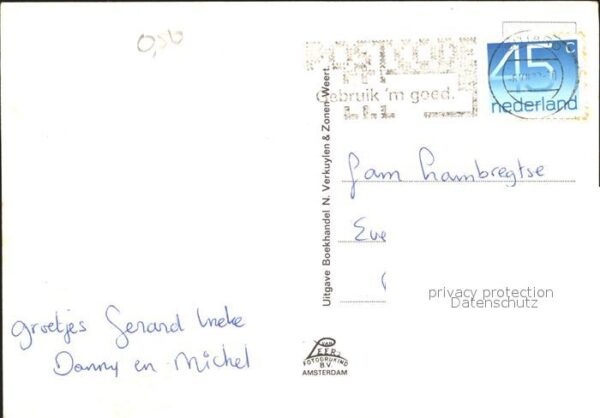 0,50
POSTCODE
Gebruik 'm goed.
45c
nederland
Uitgave Boekhandel N. Verkuylen & Zonen-Weert.
fam Lambregtse
privacy protection
Datenschutz
groetjes Gerard Ineke
Danny en Michel
VAN
LEER'S
FOTODRUKIND
B.V.
AMSTERDAM